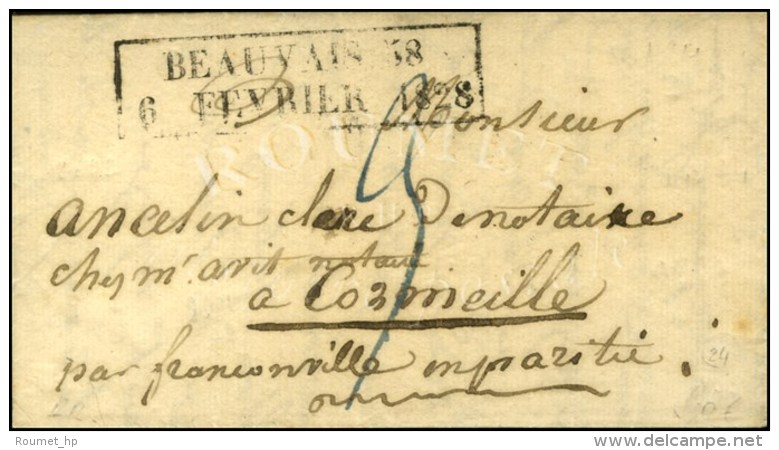 BEAUVAIS 58
6 FEVRIER 1828
Monsieur
ROUMET
ancelin clerc De notaire
chez mr. avit notaire
a Cormeille
par franconville en parisis
24
Roumet_hp
delcampe.net